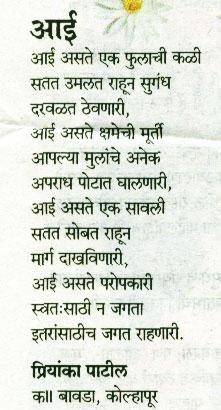 आई
आई असते एक फुलाची कळी
सतत उमलत राहून सुगंध
दरवळत ठेवणारी,
आई असते क्षमेची मूर्ती
आपल्या मुलांचे अनेक
अपराध पोटात घालणारी,
आई असते एक सावली
सतत सोबत राहून
मार्ग दाखविणारी,
आई असते परोपकारी
स्वत:साठी न जगता
इतरांसाठीच जगत राहणारी.
प्रियांका पाटील
क॥ बावडा, कोल्हापूर